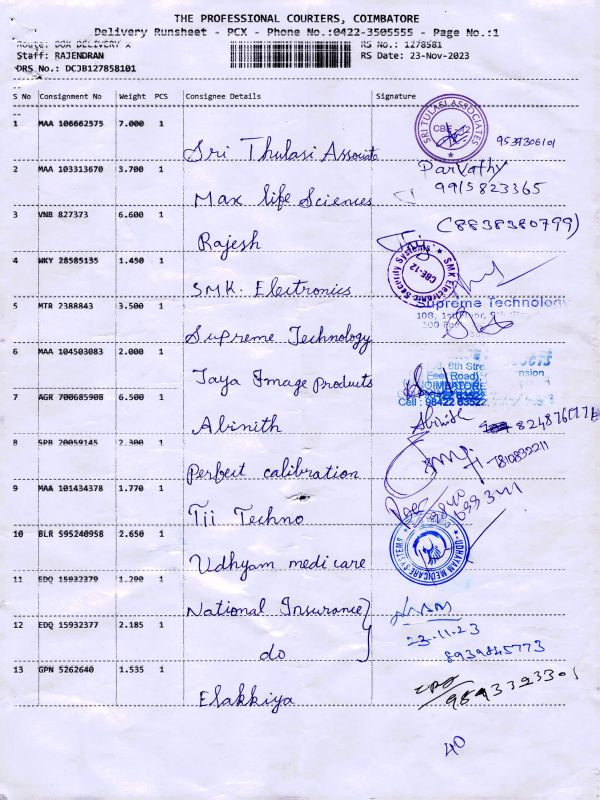 THE PROFESSIONAL COURIERS, COIMBATORE
Delivery Runsheet - PCX - Phone No.:0422-3505555 - Page No.:1
Route: BOX DELIVERY X RS No.: 1278581
Staff: RAJENDRAN RS Date: 23-Nov-2023
DRS No.: DCJB127858101
S No Consignment No Weight PCS Consignee Details Signature
1 MAA 106662575 7.000 1
SRI TULASI ASSOCIATES
CBE-12
Sri Thulasi Associate
2 MAA 103313670 3.700 1
Parvathy
9915823365
Max life Sciences
3 VNB 827373 6.600 1
(8838380799)
Rajesh
4 WKY 28585135 1.450 1
SMK Electronic Security Systems
CBE-12
SMK. Electronics
5 MTR 2388843 3.500 1
Supreme Technology
Supreme Technology
6 MAA 104503083 2.000 1
COIMBATORE
Cell : 98422 83522
Jaya Image Products
7 AGR 700685908 6.500 1
Abinith
Abinith
8 SPB 20059145 2.300 1
7810832211
Perfect calibration
9 MAA 101434378 1.770 1
Tii Techno
10 BLR 595240958 2.650 1
UDHAYAM MEDICARE SYSTEMS
Udhyam medicare
11 EDQ 15932379 1.290 1
National Insurance
12 EDQ 15932377 2.185 1
23.11.23
8939845773
do
13 GPN 5262640 1.535 1
Elakkiya
40